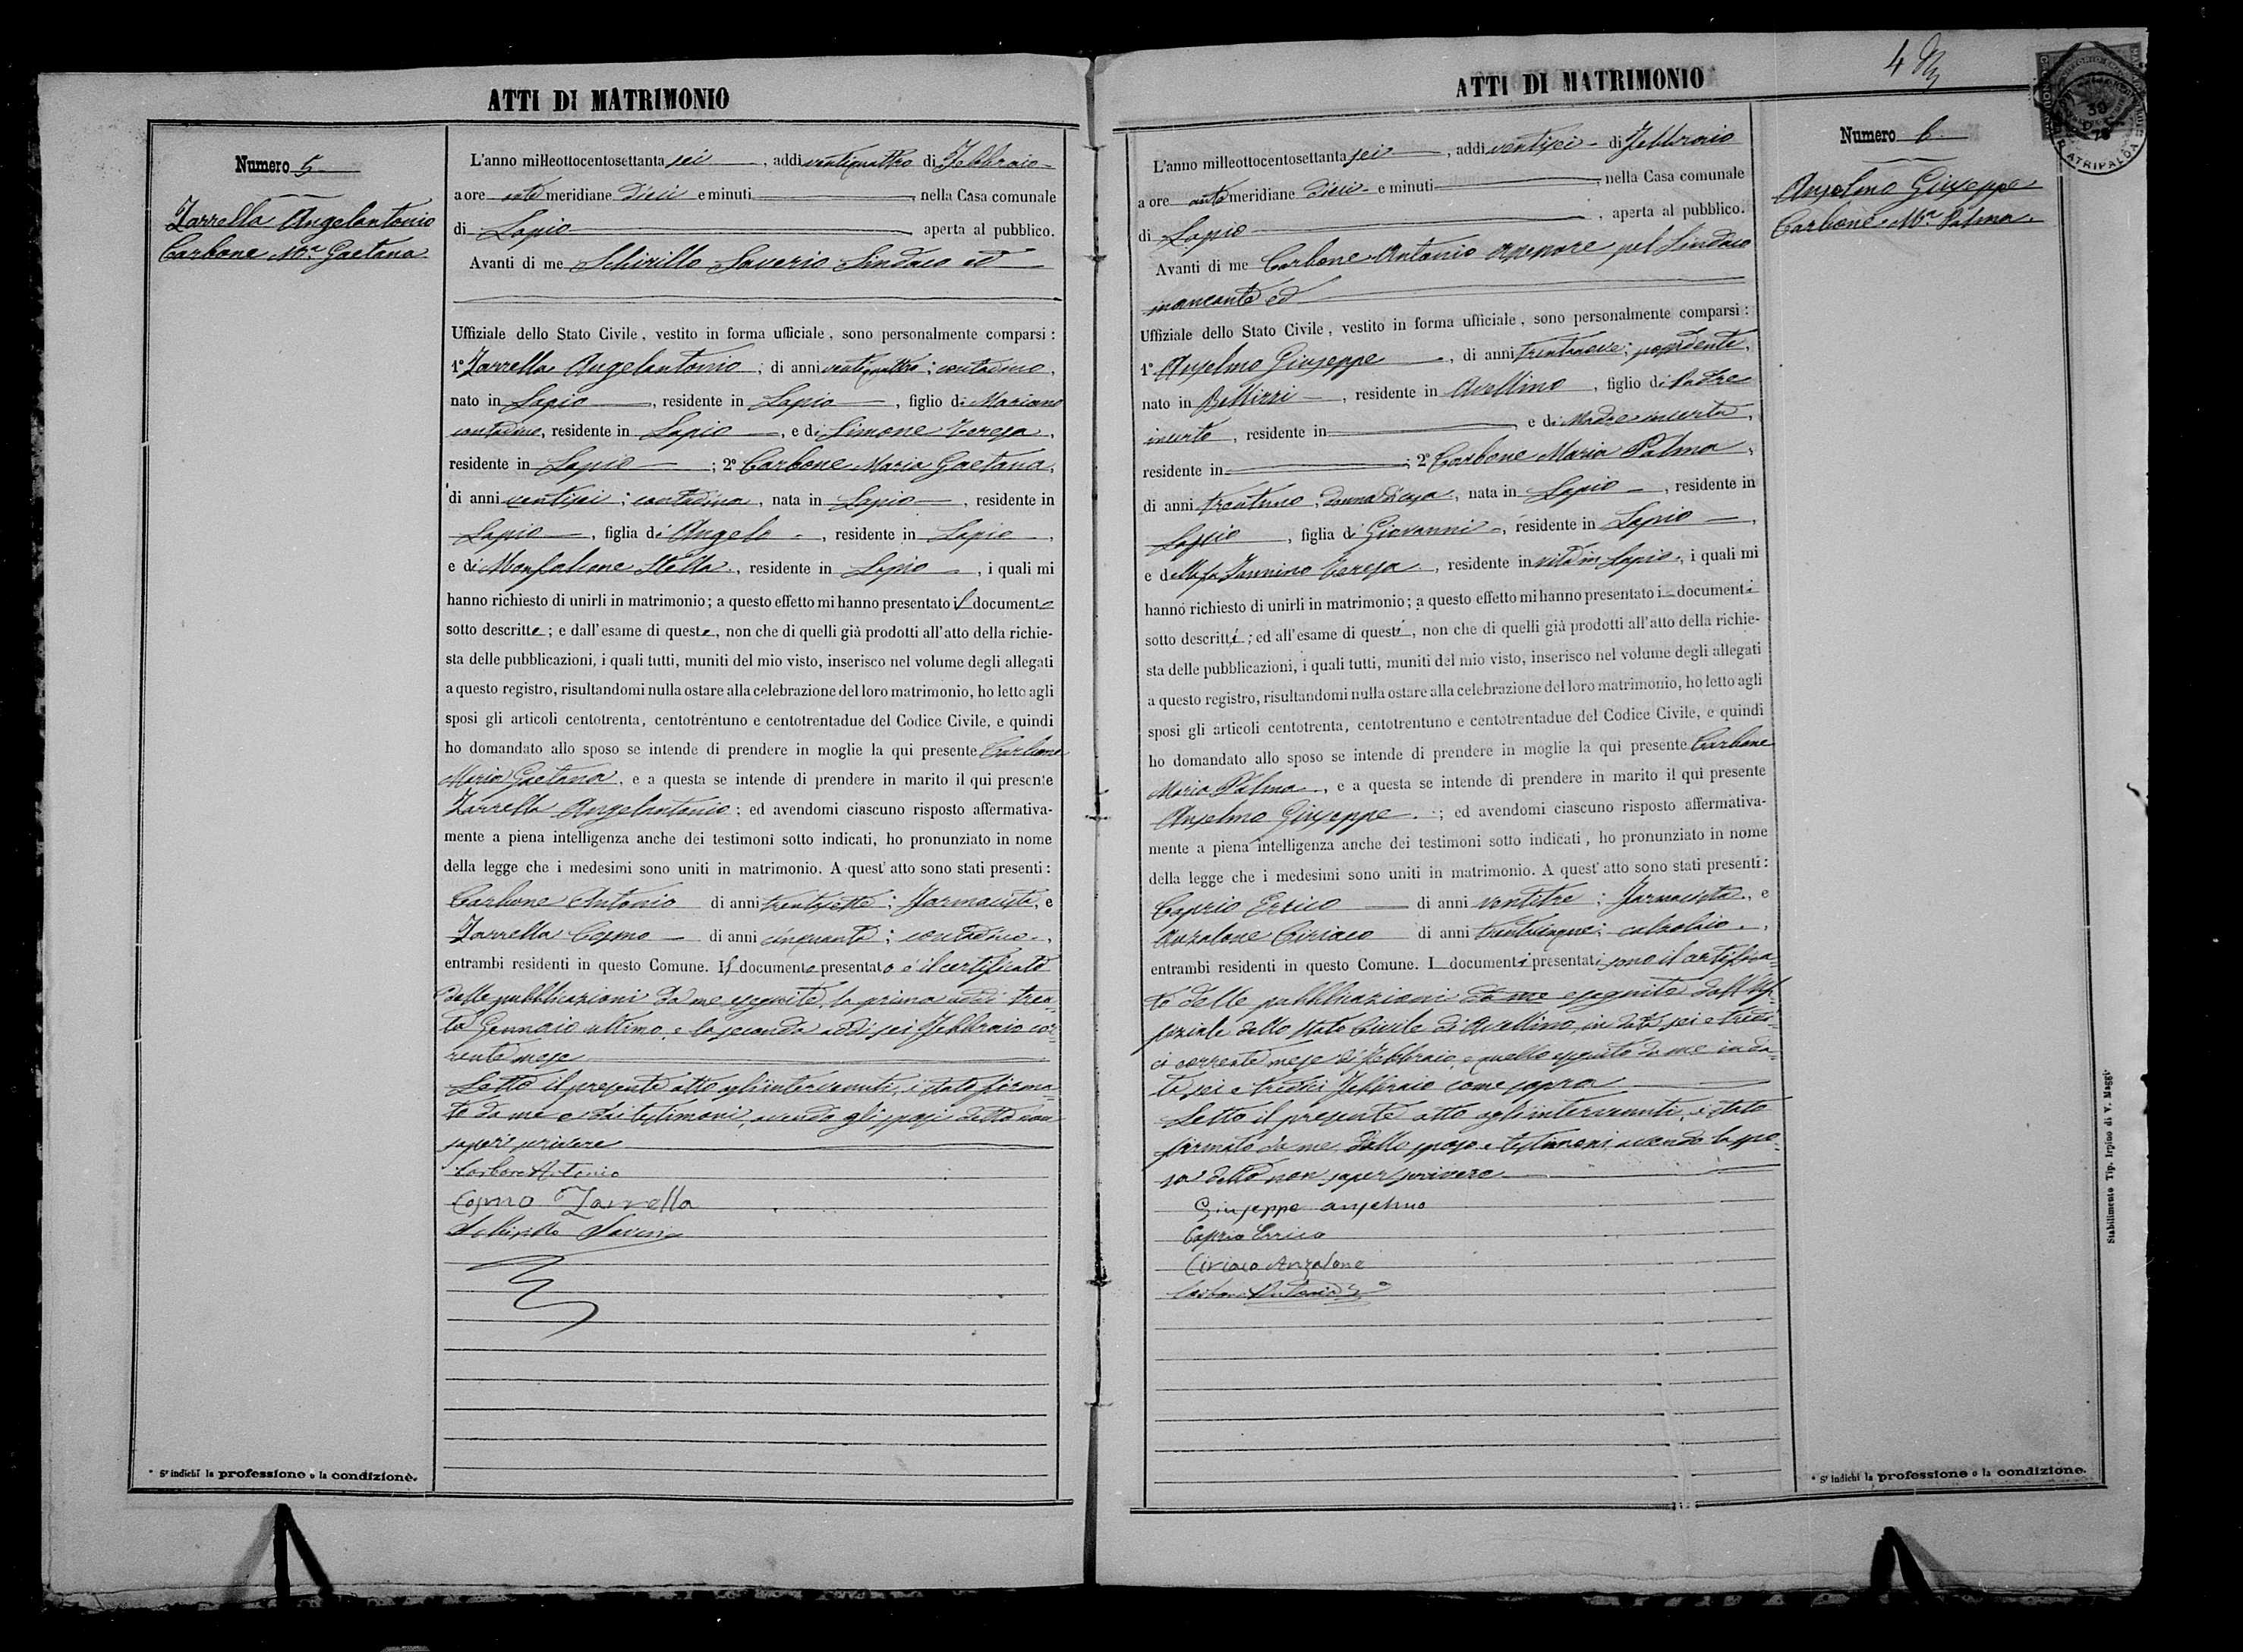 ATTI DI MATRIMONIO
Numero 5
Zarrella Angelantonio
Carbone M.a Gaetana
L'anno milleottocentosettanta sei, addi ventiquattro di Febbraio
a ore ante meridiane dieci e minuti, nella Casa comunale
di Lapio, aperta al pubblico.
Avanti di me Schirillo Saverio Sindaco ed
Uffiziale dello Stato Civile, vestito in forma ufficiale, sono personalmente comparsi:
1° Zarrella Angelantonio; di anni ventiquattro; contadino,
nato in Lapio, residente in Lapio, figlio di Mariano
contadino, residente in Lapio, e di Simone Teresa,
residente in Lapio; 2° Carbone Maria Gaetana,
di anni ventisei; contadina, nata in Lapio, residente in
Lapio, figlia di Angelo, residente in Lapio,
e di Monfalcone Stella, residente in Lapio, i quali mi
hanno richiesto di unirli in matrimonio; a questo effetto mi hanno presentato il documento
sotto descritto; e dall'esame di questo, non che di quelli già prodotti all'atto della richie-
sta delle pubblicazioni, i quali tutti, muniti del mio visto, inserisco nel volume degli allegati
a questo registro, risultandomi nulla ostare alla celebrazione del loro matrimonio, ho letto agli
sposi gli articoli centotrenta, centotrentuno e centotrentadue del Codice Civile, e quindi
ho domandato allo sposo se intende di prendere in moglie la qui presente Carbone
Maria Gaetana, e a questa se intende di prendere in marito il qui presente
Zarrella Angelantonio; ed avendomi ciascuno risposto affermativa-
mente a piena intelligenza anche dei testimoni sotto indicati, ho pronunziato in nome
della legge che i medesimi sono uniti in matrimonio. A quest' atto sono stati presenti:
Carbone Antonio di anni trentasette; Farmacista, e
Zarrella Cosmo di anni cinquanta; contadino,
entrambi residenti in questo Comune. Il documento presentato è il certificato
delle pubblicazioni da me eseguite, la prima addì tren=
ta Gennaio ultimo, e la seconda addì sei Febbraio cor=
rente mese
Letto il presente atto agli intervenuti, è stato firma=
to da me e dai testimoni, avendo gli sposi detto non
saper scrivere
Carbone Antonio
Cosmo Zarrella
Schirillo Saverio
* Si indichi la professione o la condizione.
ATTI DI MATRIMONIO
4
30
78
ATRIPALDA
Numero 6
Anselmo Giuseppe
Carbone M.a Palma
L'anno milleottocentosettanta sei, addi ventisei di Febbraio
a ore ante meridiane dieci e minuti, nella Casa comunale
di Lapio, aperta al pubblico.
Avanti di me Carbone Antonio Assessore pel Sindaco
mancante ed
Uffiziale dello Stato Civile, vestito in forma ufficiale, sono personalmente comparsi:
1° Anselmo Giuseppe, di anni trentanove; possidente,
nato in Bellizzi, residente in Avellino, figlio di Padre
incerto, residente in e di Madre incerta,
residente in; 2° Carbone Maria Palma,
di anni trentuno, donna di casa, nata in Lapio, residente in
Lapio, figlia di Giovanni, residente in Lapio,
e della fu Iannino Teresa, residente in vita in Lapio, i quali mi
hanno richiesto di unirli in matrimonio; a questo effetto mi hanno presentato i documenti
sotto descritti; ed all'esame di questi, non che di quelli già prodotti all'atto della richie-
sta delle pubblicazioni, i quali tutti, muniti del mio visto, inserisco nel volume degli allegati
a questo registro, risultandomi nulla ostare alla celebrazione del loro matrimonio, ho letto agli
sposi gli articoli centotrenta, centotrentuno e centotrentadue del Codice Civile, e quindi
ho domandato allo sposo se intende di prendere in moglie la qui presente Carbone
Maria Palma, e a questa se intende di prendere in marito il qui presente
Anselmo Giuseppe; ed avendomi ciascuno risposto affermativa-
mente a piena intelligenza anche dei testimoni sotto indicati, ho pronunziato in nome
della legge che i medesimi sono uniti in matrimonio. A quest' atto sono stati presenti:
Caprio Errico di anni ventitre; Farmacista, e
Anzalone Ciriaco di anni trentacinque; calzolaio,
entrambi residenti in questo Comune. I documenti presentati sono il certifica=
to delle pubblicazioni da me eseguite dall'Uf=
fiziale dello Stato Civile di Avellino, in data sei e tredi=
ci corrente mese di Febbraio, e quello eseguito da me in da=
ta sei e tredici Febbraio come sopra
Letto il presente atto agli intervenuti, è stato
firmato da me, dallo sposo e testimoni, avendo la spo=
sa detto non saper scrivere
Giuseppe Anselmo
Caprio Errico
Ciriaco Anzalone
Carbone Antonio
* Si indichi la professione o la condizione.
Stabilimento Tip. Irpino di V. Maggi